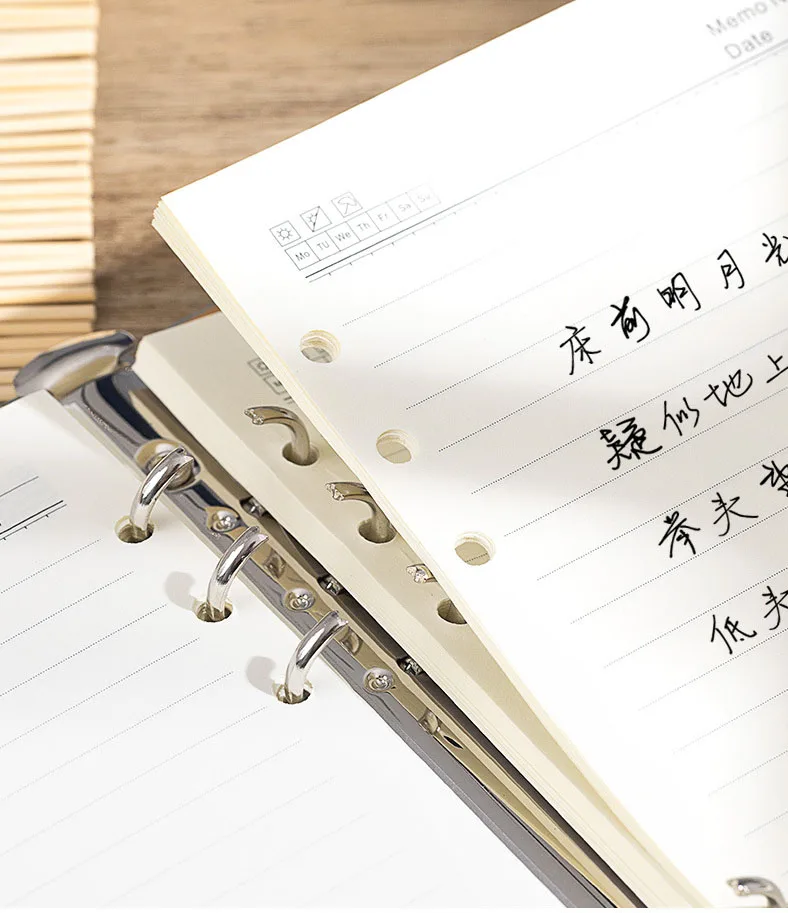 Memo N
Date
Mo Tu We Th Fr Sa Su
床前明月光
疑似地上
举头
低头